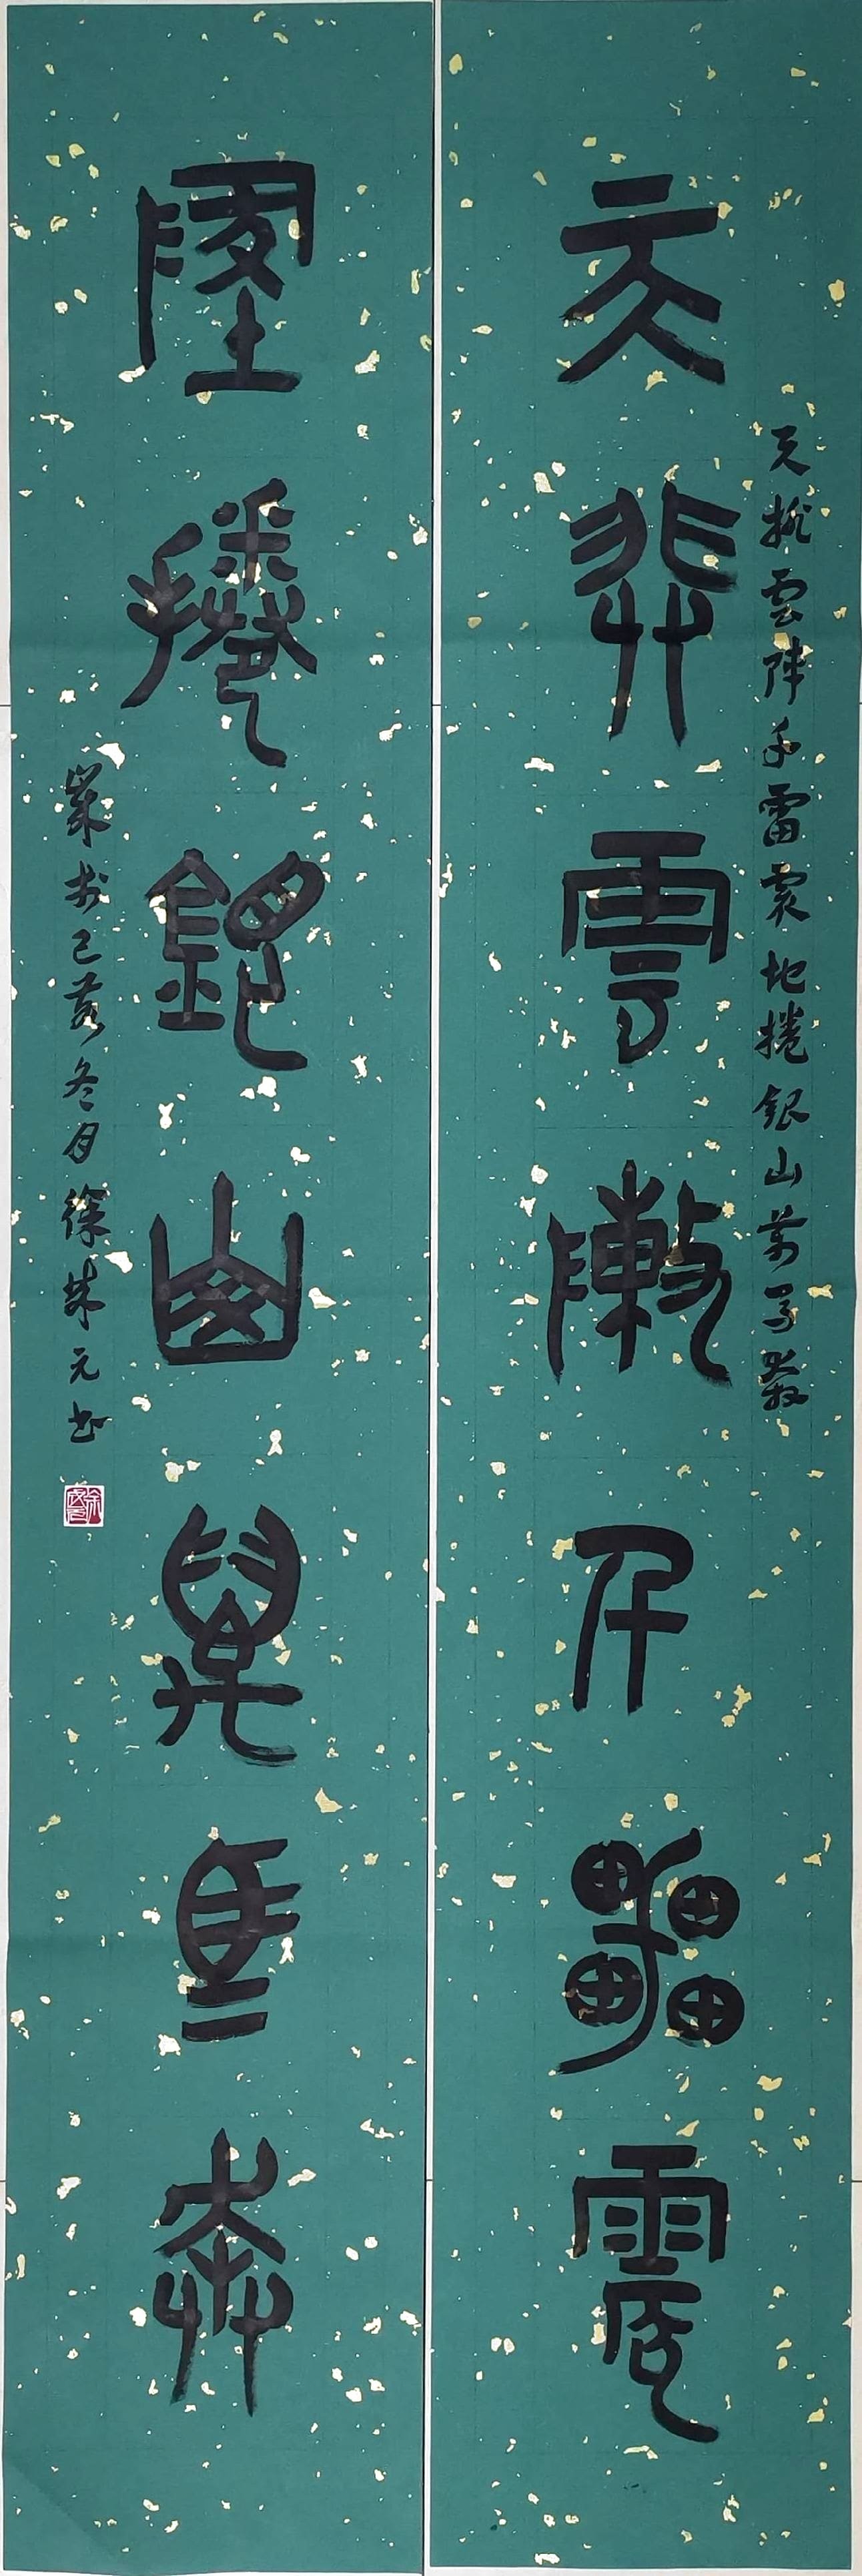 天排雲陣千雷震
地捲銀山萬馬奔
天排雲陣千雷震地捲銀山萬馬
篆於己亥冬月徐成元书